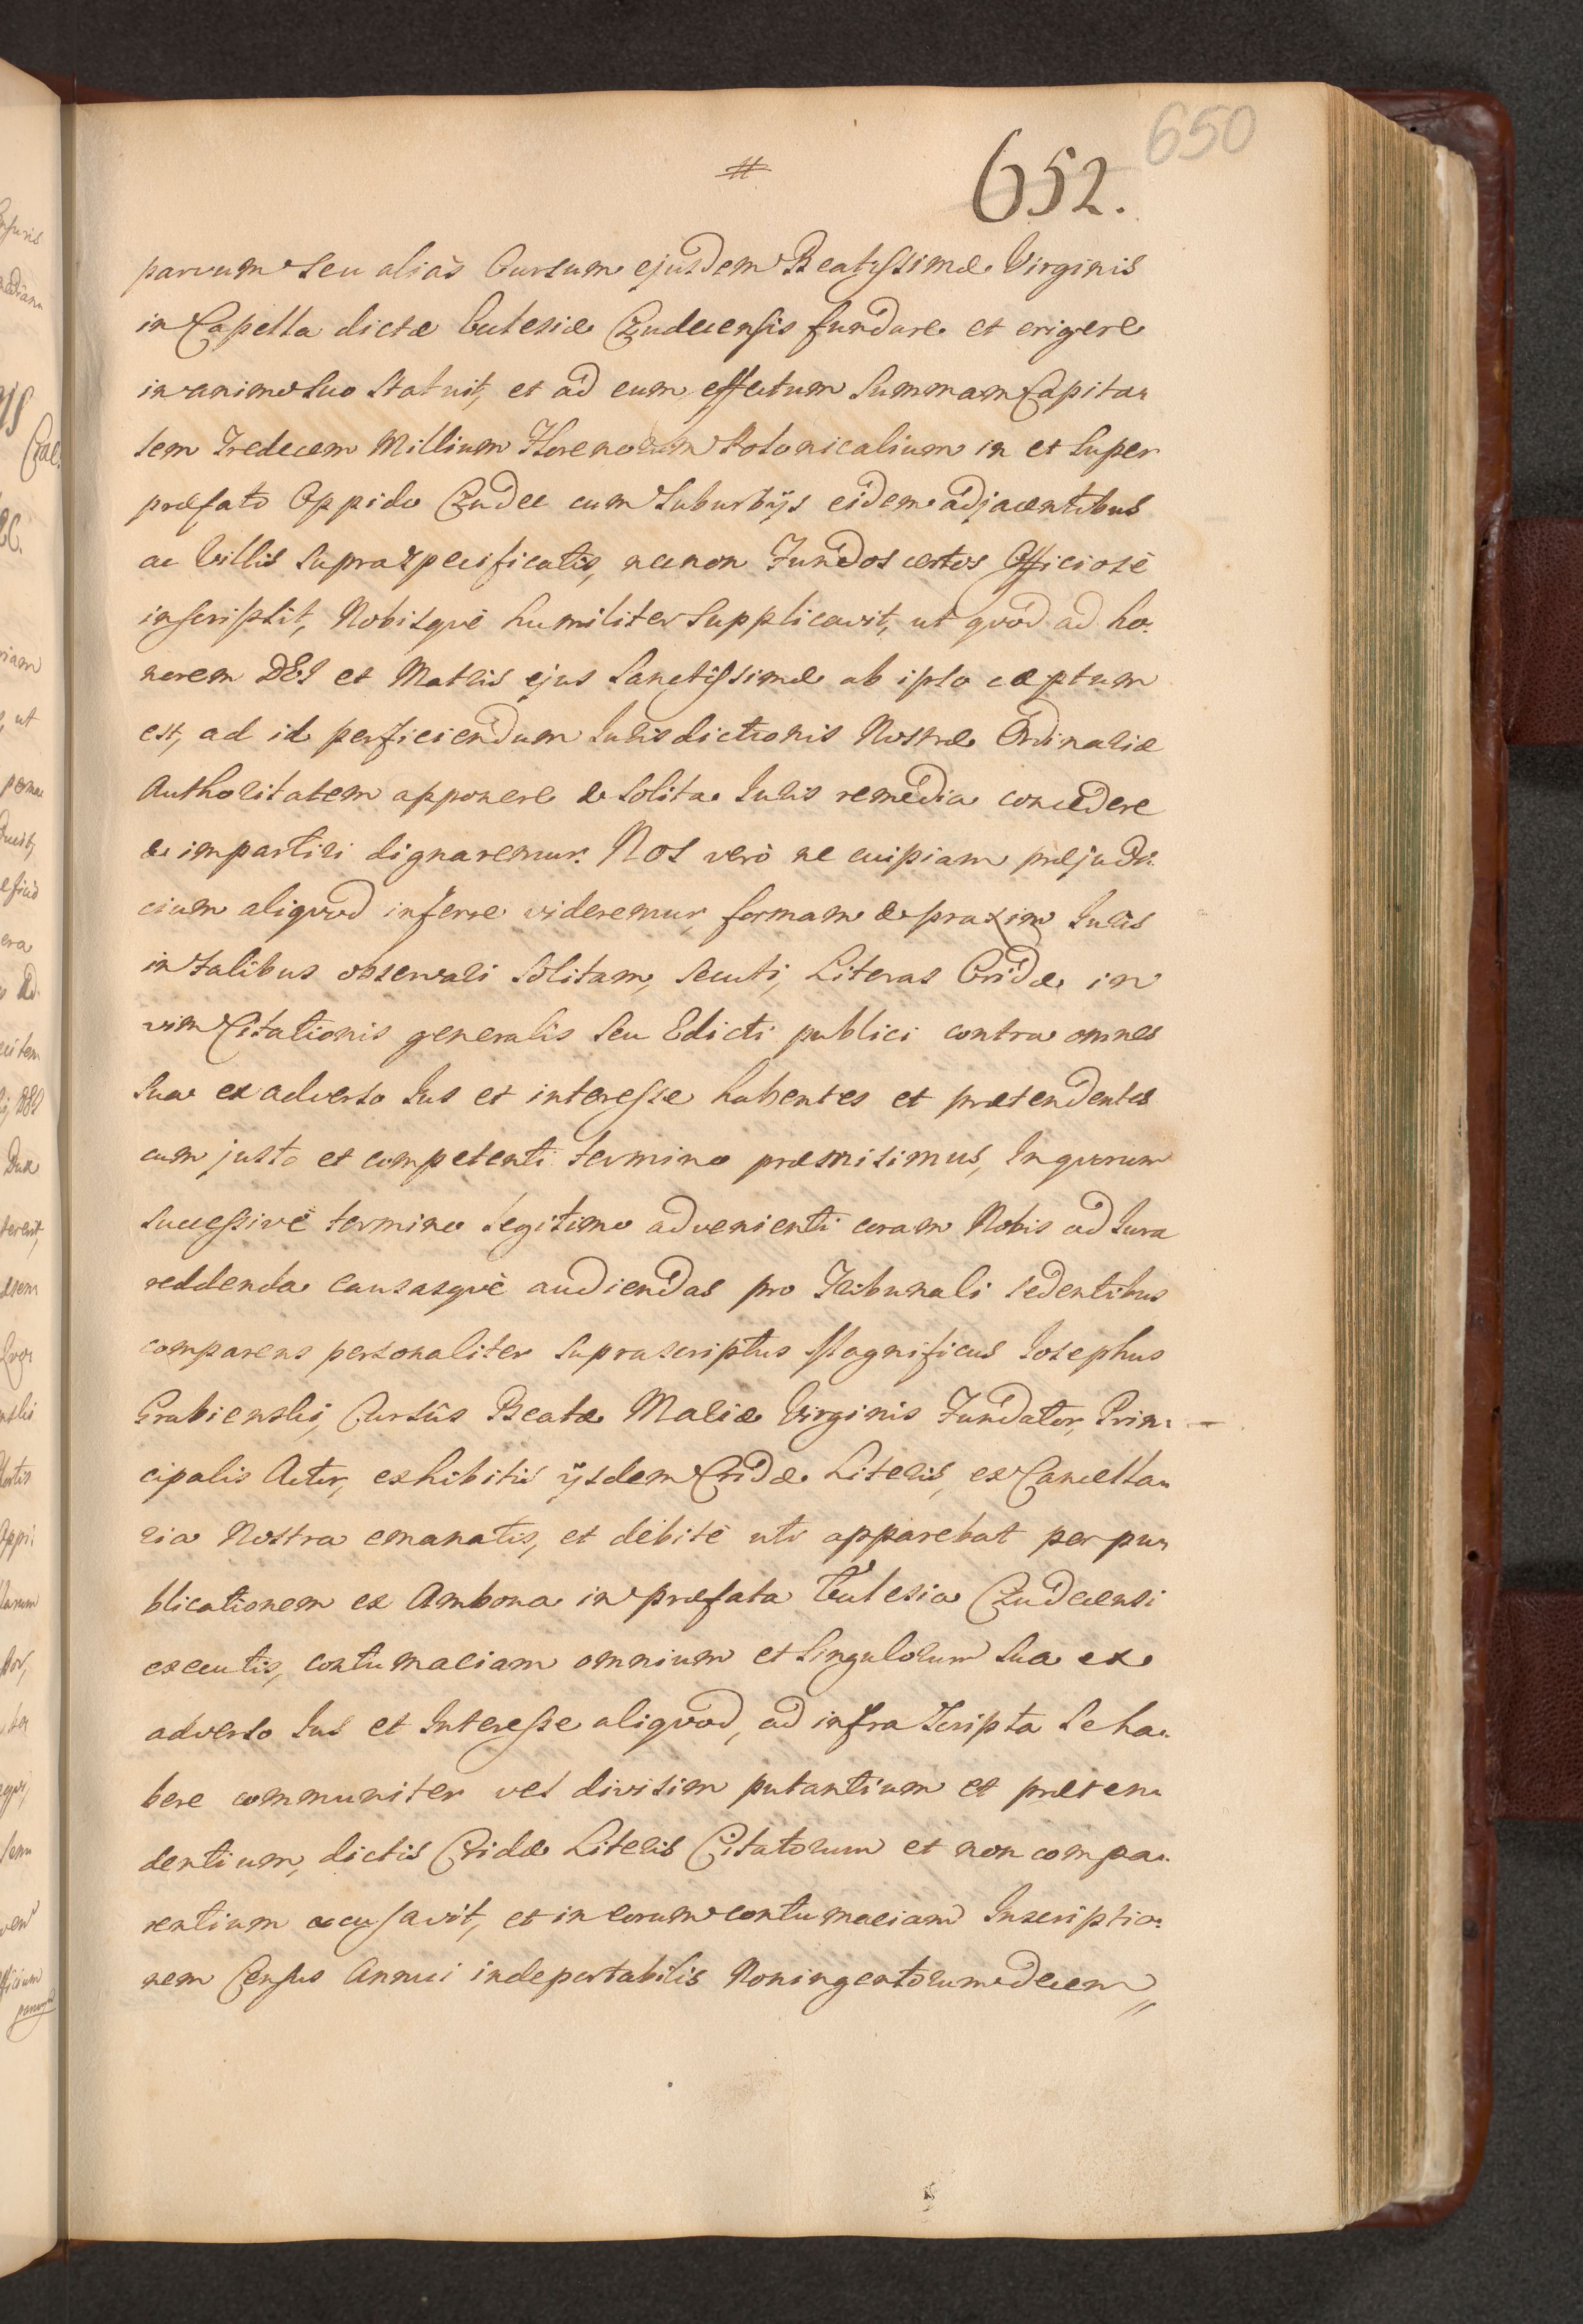 650
652.
#
parvum seu aliàs Cursum ejusdem Beatissimæ Virginis
in Capella dictæ Ecclesiæ Czudecensis fundare et erigere
in animo suo statuit, et ad eum effectum Summam Capita„
lem Tredecem Millium Florenorum Polonicalium in et super
præfato Oppido Czudec cum Suburbijs eidem adjacentibus
ac Villis supraspecificatis, necnon Fundos certos Officiosè
inscripsit, Nobisquè humiliter supplicavit, ut quod ad ho„
norem DEI et Matris ejus Sanctissimæ ab ipso cæptum
est, ad id perficiendum Iurisdictionis Nostræ Ordinariæ
Authoritatem apponere & solita Iuris remedia concedere
& impartiri dignaremur. Nos verò ne cuipiam præjudi„
cium aliquod inferre videremur, formam & praxim Iuris
in talibus observari solitam, secuti, Literas Cridæ in
vim Citationis generalis seu Edicti publici contra omnes
sua ex adverso Ius et interesse habentes et prætendentes
cum justo et competenti termino præmisimus, In quorum
successivè termino legitimo advenienti coram Nobis ad Iura
reddenda causasquè audiendas pro Tribunali sedentibus
comparens personaliter suprascriptus Magnificus Iosephus
Grabienski, Cursûs Beatæ Mariæ Virginis Fundator, Prin„ —
cipalis Actor, exhibitis ijsdem Cridæ Literis, ex Cancella„
ria Nostra emanatis, et debitè uti apparebat per pu„
blicationem ex Ambona in præfata Ecclesia Czudecensi
executis, contumaciam omnium et singulorum sua ex
adverso Ius et Interesse aliquod, ad infra scripta se ha„
bere communiter vel divisim putantium et præten„
dentium, dictis Cridæ Literis Citatorum et non compa„
rentium accusavit, et in eorum contumaciam Inscriptio„
nem Census Annui indeportabilis Noningentorum decem„